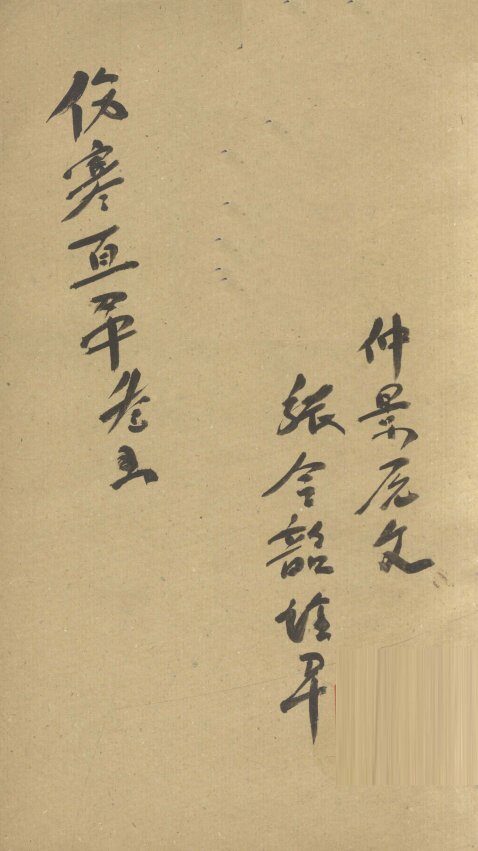 仲景原文
張令韶註解
伤寒直解卷五